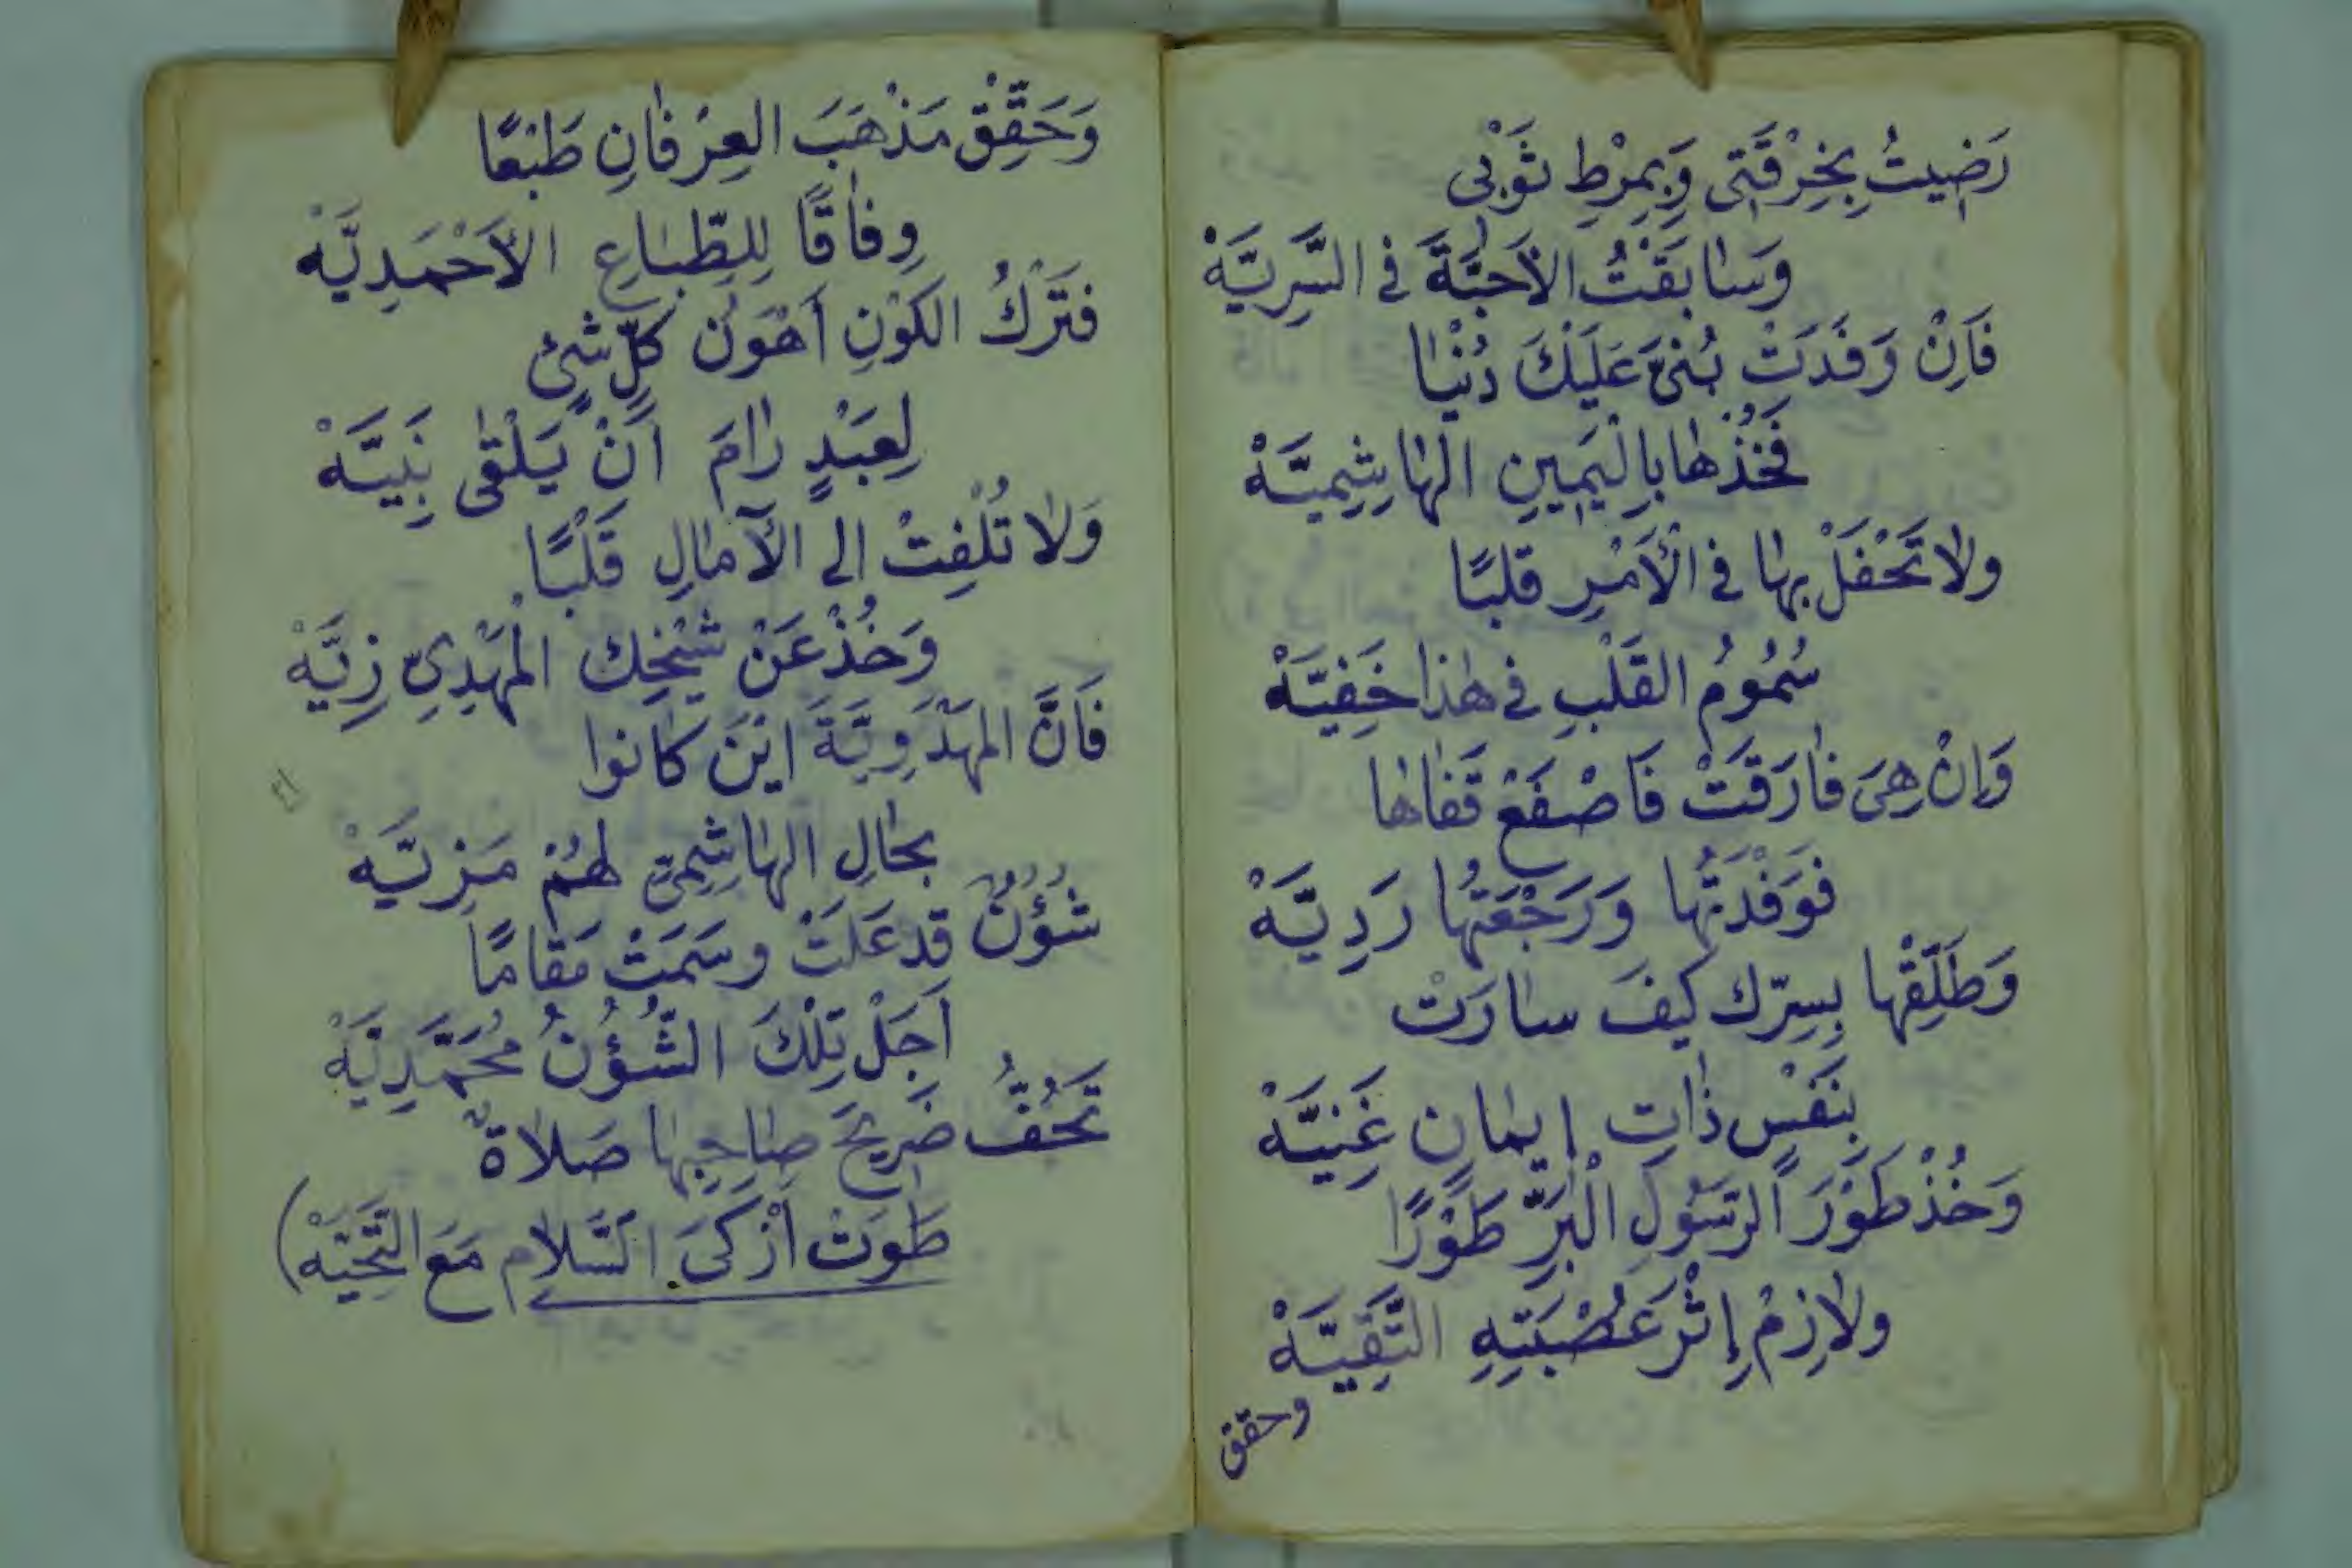 رَضِيتُ بِخِرْقَتِى وَبِمِرْطِ ثَوْبِى
وَسَابَقْتُ الأَحِبَّةَ فى السَّرِيَّهْ
فَاِنْ وَفَدَتْ بُنَىَّ عَلَيْكَ دُنْيَا
فَخُذْهَا بِاليَمِينِ الهَاشِمِيَّهْ
ولا تَحْفَلْ بِهَا فى الْأَمْرِ قلبًا
سُمُومُ القَلْبِ فى هٰذا خَفِيَّهْ
وَإنْ هِىَ فَارَقَتْ فَاصْفَعْ قَفَاهَا
فَوَفْدَتُهَا وَرَجْعَتُهَا رَدِيَّهْ
وَطَلِّقْهَا بِسِرّك كَيفَ سارَتْ
بِنَفْسٍ ذَاتِ إيمَانٍ غَنِيَّهْ
وَخُذْ طَوْرَ الرَسُولِ الْبَرِّ طَوْرًا
ولازِمْ إِثْرَ عُصْبَتِهِ التَّقِيَّهْ
وحقق
وَحَقِّقْ مَذْهَبَ العِرْفَانِ طَبْعًا
وِفَاقًا لِلطِّبَاعِ الأَحْمَدِيَّهْ
فَتَرْكُ الكَوْنِ أَهْوَنُ كلِّ شَىْءٍ
لِعَبْدٍ رَامَ أَنْ يَلْقَى نَبِيَّهْ
وَلَا تُلْفِتْ الى الآمَالِ قَلْبًا
وَخُذْ عَنْ شَيْخِك المْهْدِىِّ زِيَّهْ
فَاَنَّ المَهْدَوِيَّةَ اَيْنَ كَانوا
بحَالِ الهَاشِمِىّ لهُمْ مَزِيَّهْ
شُؤُنٌ قد عَلَتْ وسَمَتْ مَقَامًا
اَجَلْ تِلْكَ الشُّؤُنُ مُحَمَّدِيَّهْ
تَحُفُّ ضَرِيحَ صَاحِبِهَا صَلَاةٌ
طَوَتْ أَزْكَىَ السَّلَام مَعَ التَّحِيَّهْ)